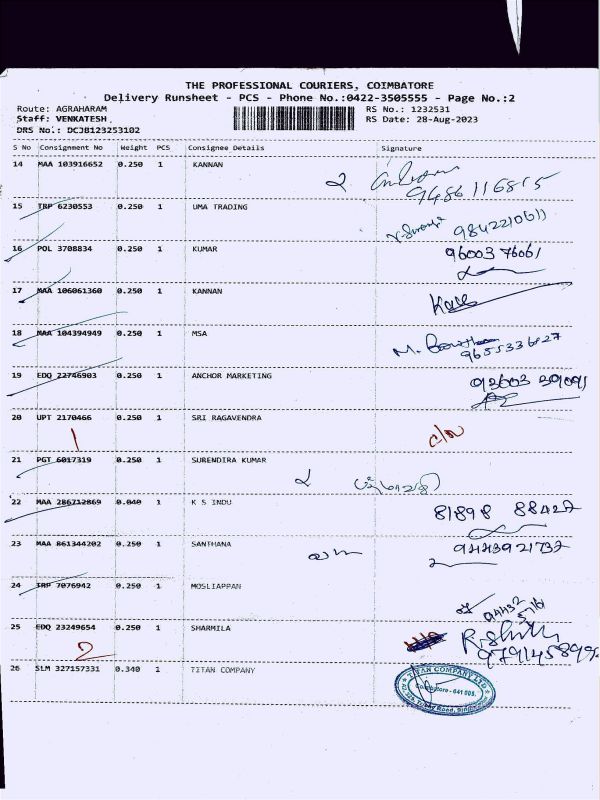 THE PROFESSIONAL COURIERS, COIMBATORE
Delivery Runsheet - PCS - Phone No.:0422-3505555 - Page No.:2
Route: AGRAHARAM RS No.: 1232531
Staff: VENKATESH. RS Date: 28-Aug-2023
DRS No.: DCJB123253102
S No Consignment No Weight PCS Consignee Details Signature
14 MAA 103916652 0.250 1 KANNAN
2 9486116815
15 TRP 6230553 0.250 1 UMA TRADING
9842210611
16 POL 3708834 0.250 1 KUMAR 96003 76061
17 MAA 106061360 0.250 1 KANNAN
18 MAA 104394949 0.250 1 MSA
M.
19 EDQ 22746903 0.250 1 ANCHOR MARKETING
20 UPT 2170466 0.250 1 SRI RAGAVENDRA
1
21 PGT 6017319 0.250 1 SURENDIRA KUMAR
22 MAA 286712869 0.040 1 K S INDU 81898 88427
23 MAA 861344202 0.250 1 SANTHANA 9443921732
24 TRP 7076942 0.250 1 MOSLIAPPAN
25 EDQ 23249654 0.250 1 SHARMILA
2
26 SLM 327157331 0.340 1 TITAN COMPANY
TITAN COMPANY LTD
Coimbatore - 641 005.